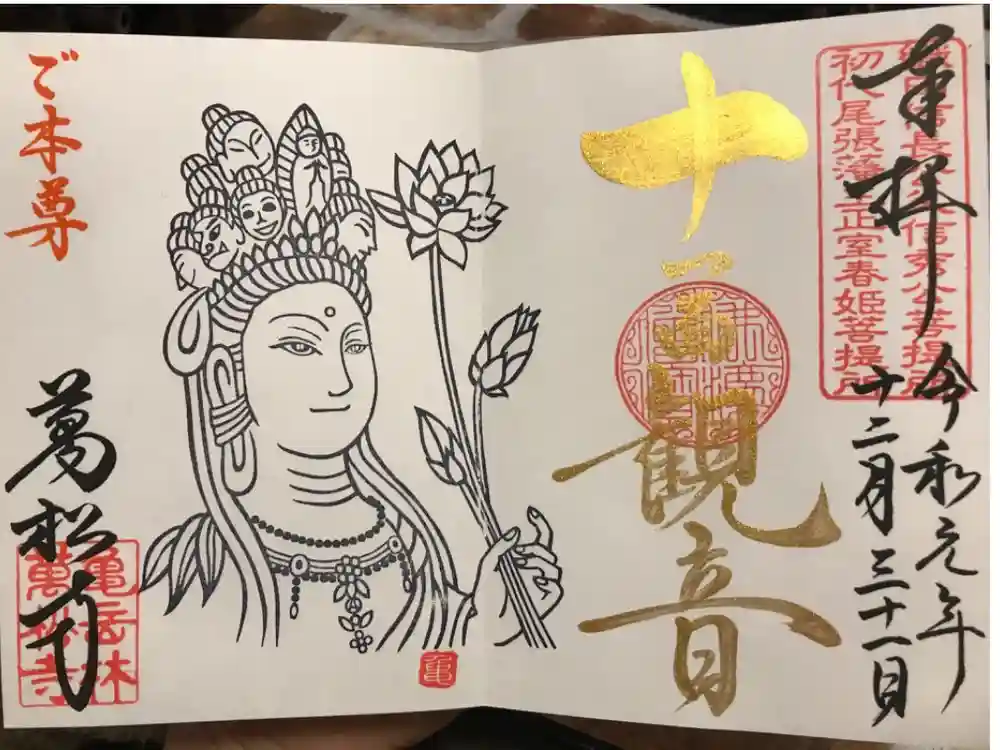 奉拝
令和元年
十二月三十一日
織田信長公父信秀公菩提所
初代尾張藩主正室春姫菩提所
十一面観音
ご本尊
萬松寺
亀岳林
萬松寺
亀